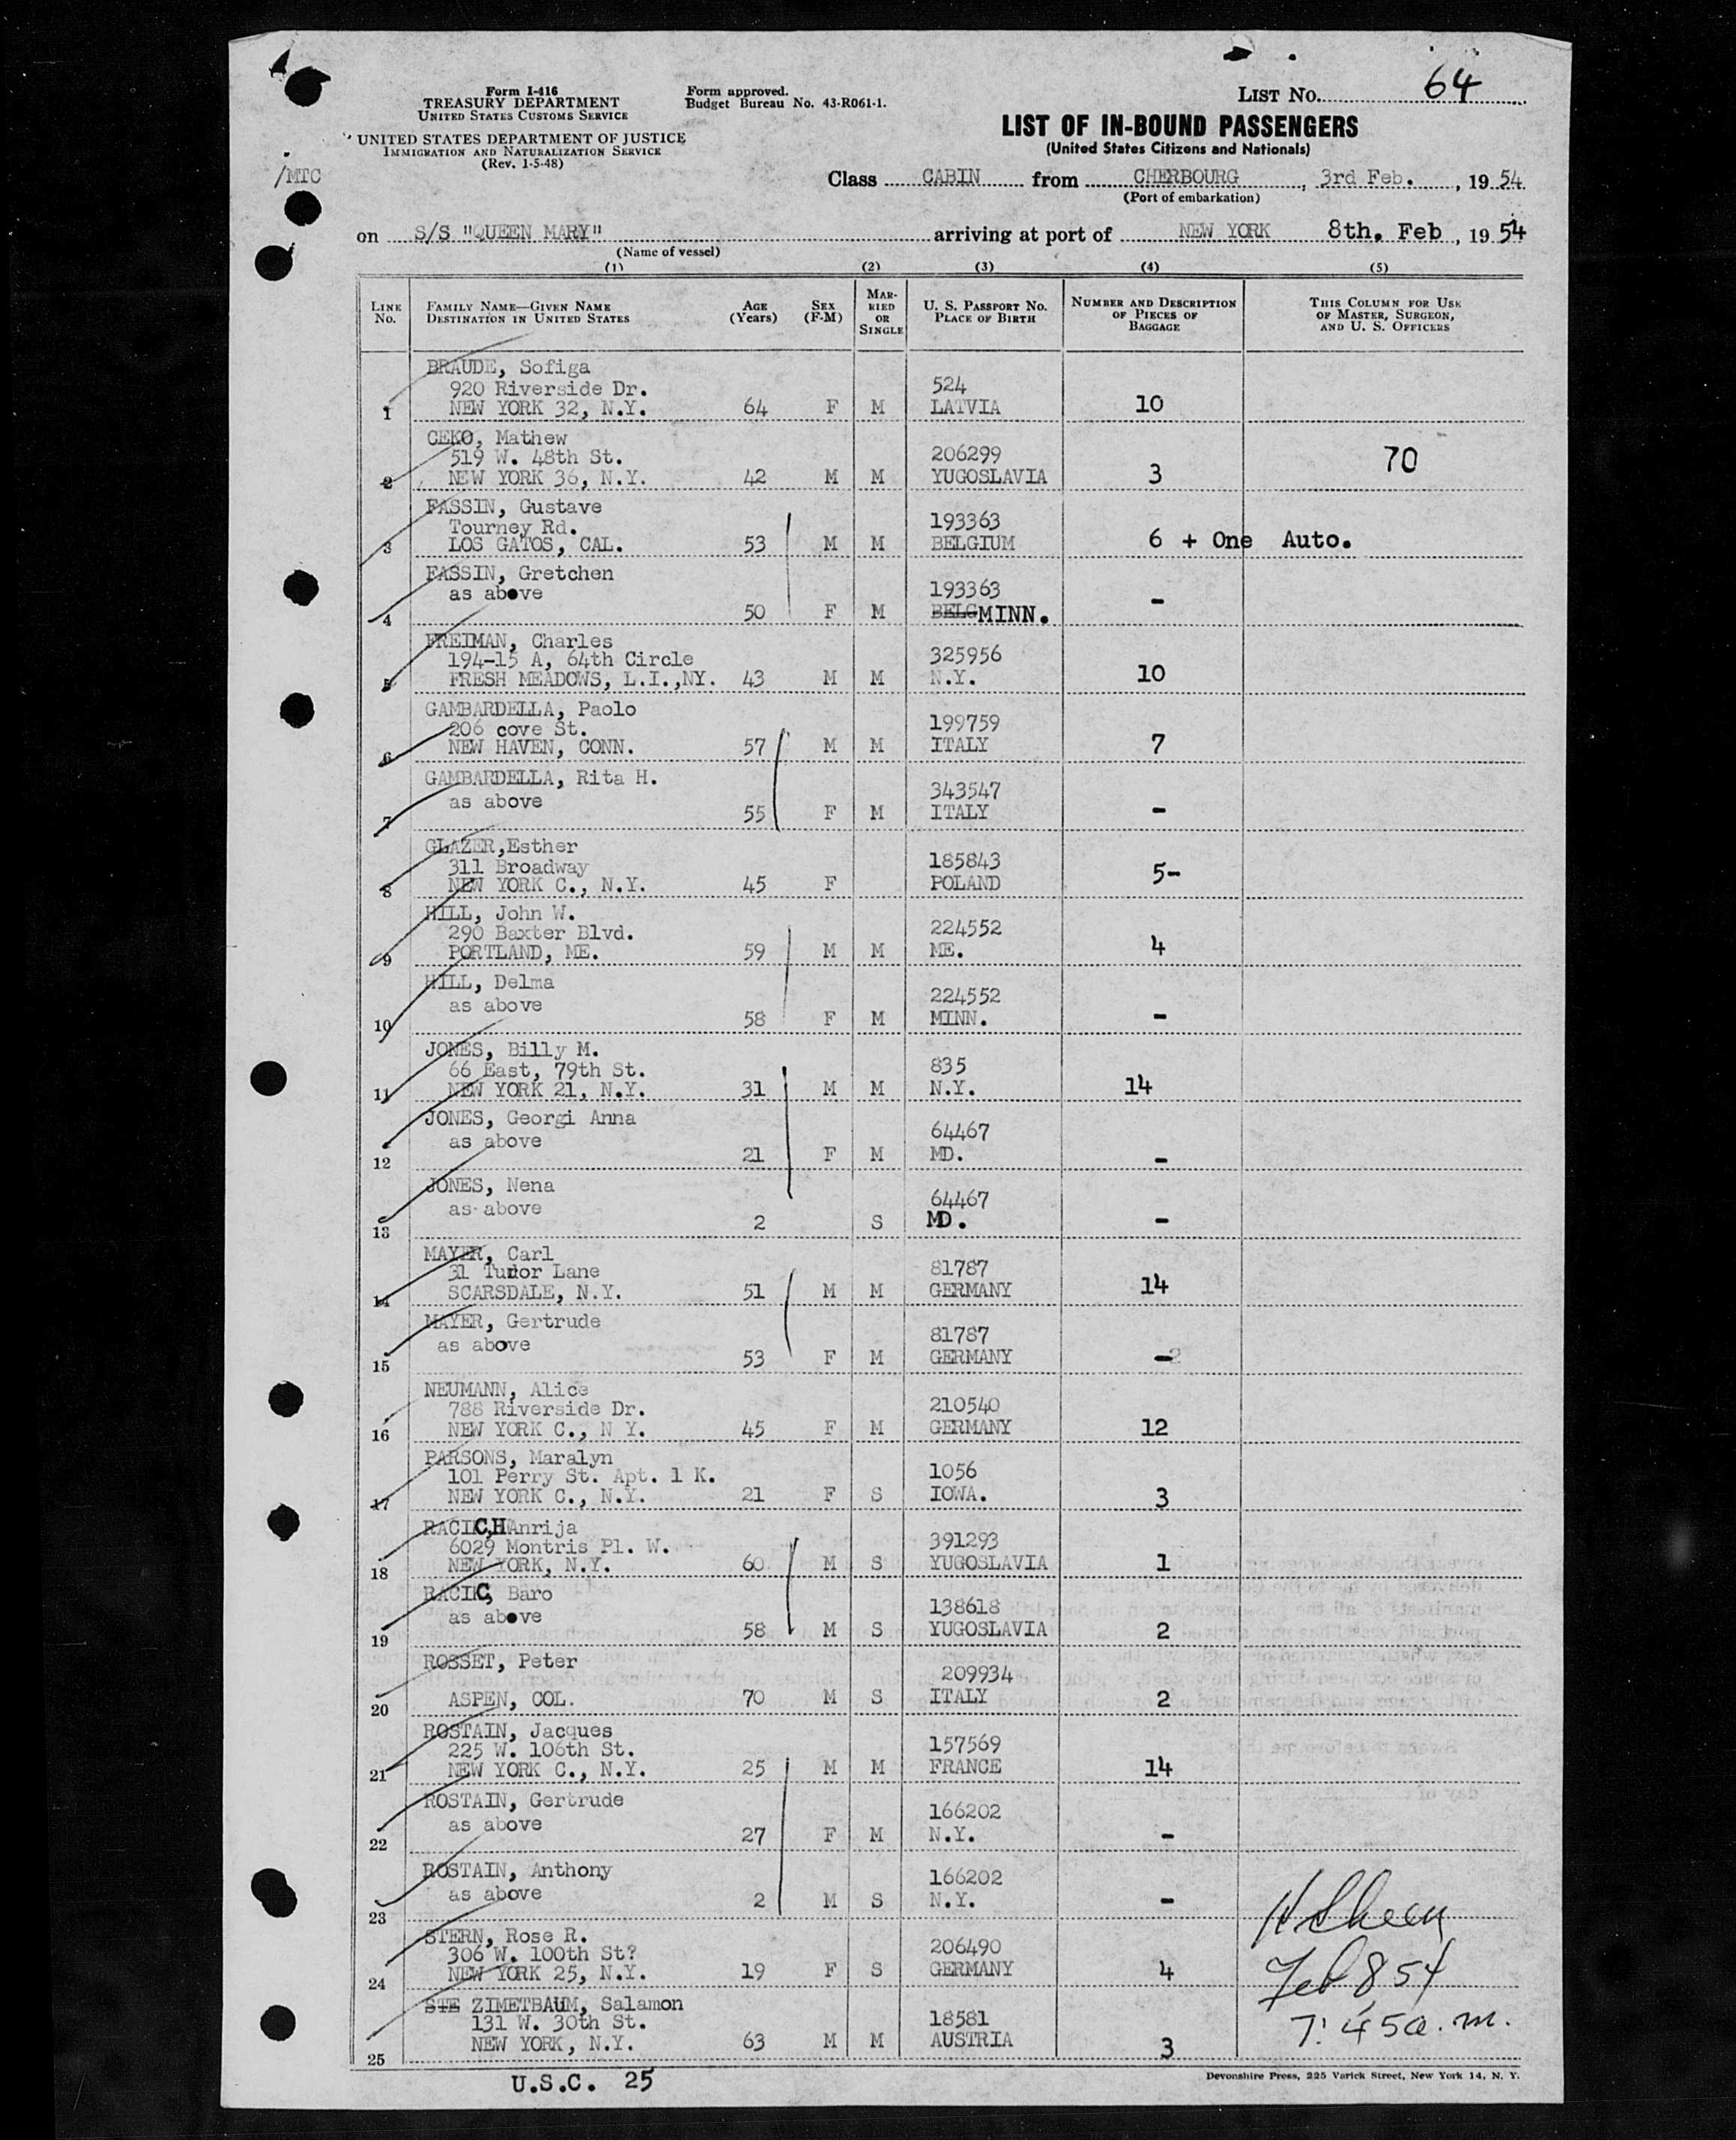 Form I-416
TREASURY DEPARTMENT
UNITED STATES CUSTOMS SERVICE
UNITED STATES DEPARTMENT OF JUSTICE
IMMIGRATION AND NATURALIZATION SERVICE
(Rev. 1-5-48)
Form approved.
Budget Bureau No. 43-R061-1.
LIST No. 64
LIST OF IN-BOUND PASSENGERS
(United States Citizens and Nationals)
/MTC
Class CABIN from CHERBOURG, 3rd Feb., 1954
(Port of embarkation)
on S/S "QUEEN MARY" arriving at port of NEW YORK 8th. Feb, 1954
(Name of vessel)
(1) (2) (3) (4) (5)
LINE No. FAMILY NAME—GIVEN NAME DESTINATION IN UNITED STATES AGE (Years) SEX (F-M) MARRIED OR SINGLE U. S. PASSPORT No. PLACE OF BIRTH NUMBER AND DESCRIPTION OF PIECES OF BAGGAGE THIS COLUMN FOR USE OF MASTER, SURGEON, AND U. S. OFFICERS
BRAUDE, Sofiga
920 Riverside Dr. 524
1 NEW YORK 32, N.Y. 64 F M LATVIA 10
CEKO, Mathew
519 W. 48th St. 206299 70
2 NEW YORK 36, N.Y. 42 M M YUGOSLAVIA 3
FASSIN, Gustave
Tourney Rd. 193363
3 LOS GATOS, CAL. 53 M M BELGIUM 6 + One Auto.
FASSIN, Gretchen
as above 193363
4 50 F M BELG MINN. -
FREIMAN, Charles
194-15 A, 64th Circle 325956
5 FRESH MEADOWS, L.I.,NY. 43 M M N.Y. 10
GAMBARDELLA, Paolo
206 cove St. 199759
6 NEW HAVEN, CONN. 57 M M ITALY 7
GAMBARDELLA, Rita H.
as above 343547
7 55 F M ITALY -
GLAZER,Esther
311 Broadway 185843
8 NEW YORK C., N.Y. 45 F POLAND 5-
HILL, John W.
290 Baxter Blvd. 224552
9 PORTLAND, ME. 59 M M ME. 4
HILL, Delma
as above 224552
10 58 F M MINN. -
JONES, Billy M.
66 East, 79th St. 835
11 NEW YORK 21, N.Y. 31 M M N.Y. 14
JONES, Georgi Anna
as above 64467
12 21 F M MD. -
JONES, Nena
as above 64467
13 2 S MD. -
MAYER, Carl
31 Tudor Lane 81787
14 SCARSDALE, N.Y. 51 M M GERMANY 14
MAYER, Gertrude
as above 81787
15 53 F M GERMANY -
NEUMANN, Alice
788 Riverside Dr. 210540
16 NEW YORK C., N Y. 45 F M GERMANY 12
PARSONS, Maralyn
101 Perry St. Apt. 1 K. 1056
17 NEW YORK C., N.Y. 21 F S IOWA. 3
RACIC,HAnrija
6029 Montris Pl. W. 391293
18 NEW YORK, N.Y. 60 M S YUGOSLAVIA 1
RACIC, Baro
as above 138618
19 58 M S YUGOSLAVIA 2
ROSSET, Peter
209934
20 ASPEN, COL. 70 M S ITALY 2
ROSTAIN, Jacques
225 W. 106th St. 157569
21 NEW YORK C., N.Y. 25 M M FRANCE 14
ROSTAIN, Gertrude
as above 166202
22 27 F M N.Y. -
ROSTAIN, Anthony
as above 166202
23 2 M S N.Y. -
STERN, Rose R.
306 W. 100th St? 206490
24 NEW YORK 25, N.Y. 19 F S GERMANY 4
Feb 8 54
STE ZIMETBAUM, Salamon
131 W. 30th St. 18581
7:45a.m.
25 NEW YORK, N.Y. 63 M M AUSTRIA 3
U.S.C. 25
Devonshire Press, 225 Varick Street, New York 14, N. Y.